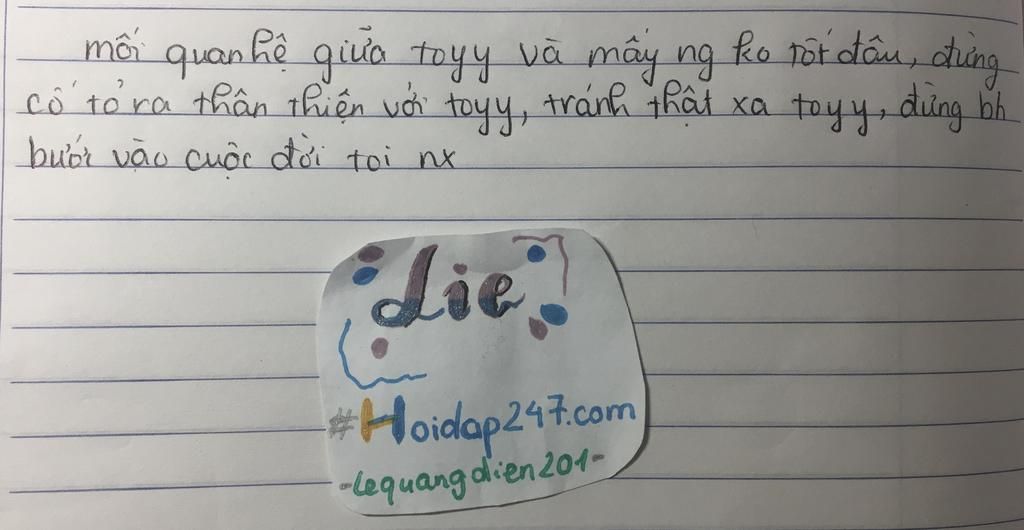 mối quan hệ giữa toyy và mấy ng ko tốt đâu, đừng
cố tỏ ra thân thiện với toyy, tránh thật xa toyy, đừng bh
bước vào cuộc đời toi nx
die
#Hoidap247.com
-lequangdien201-